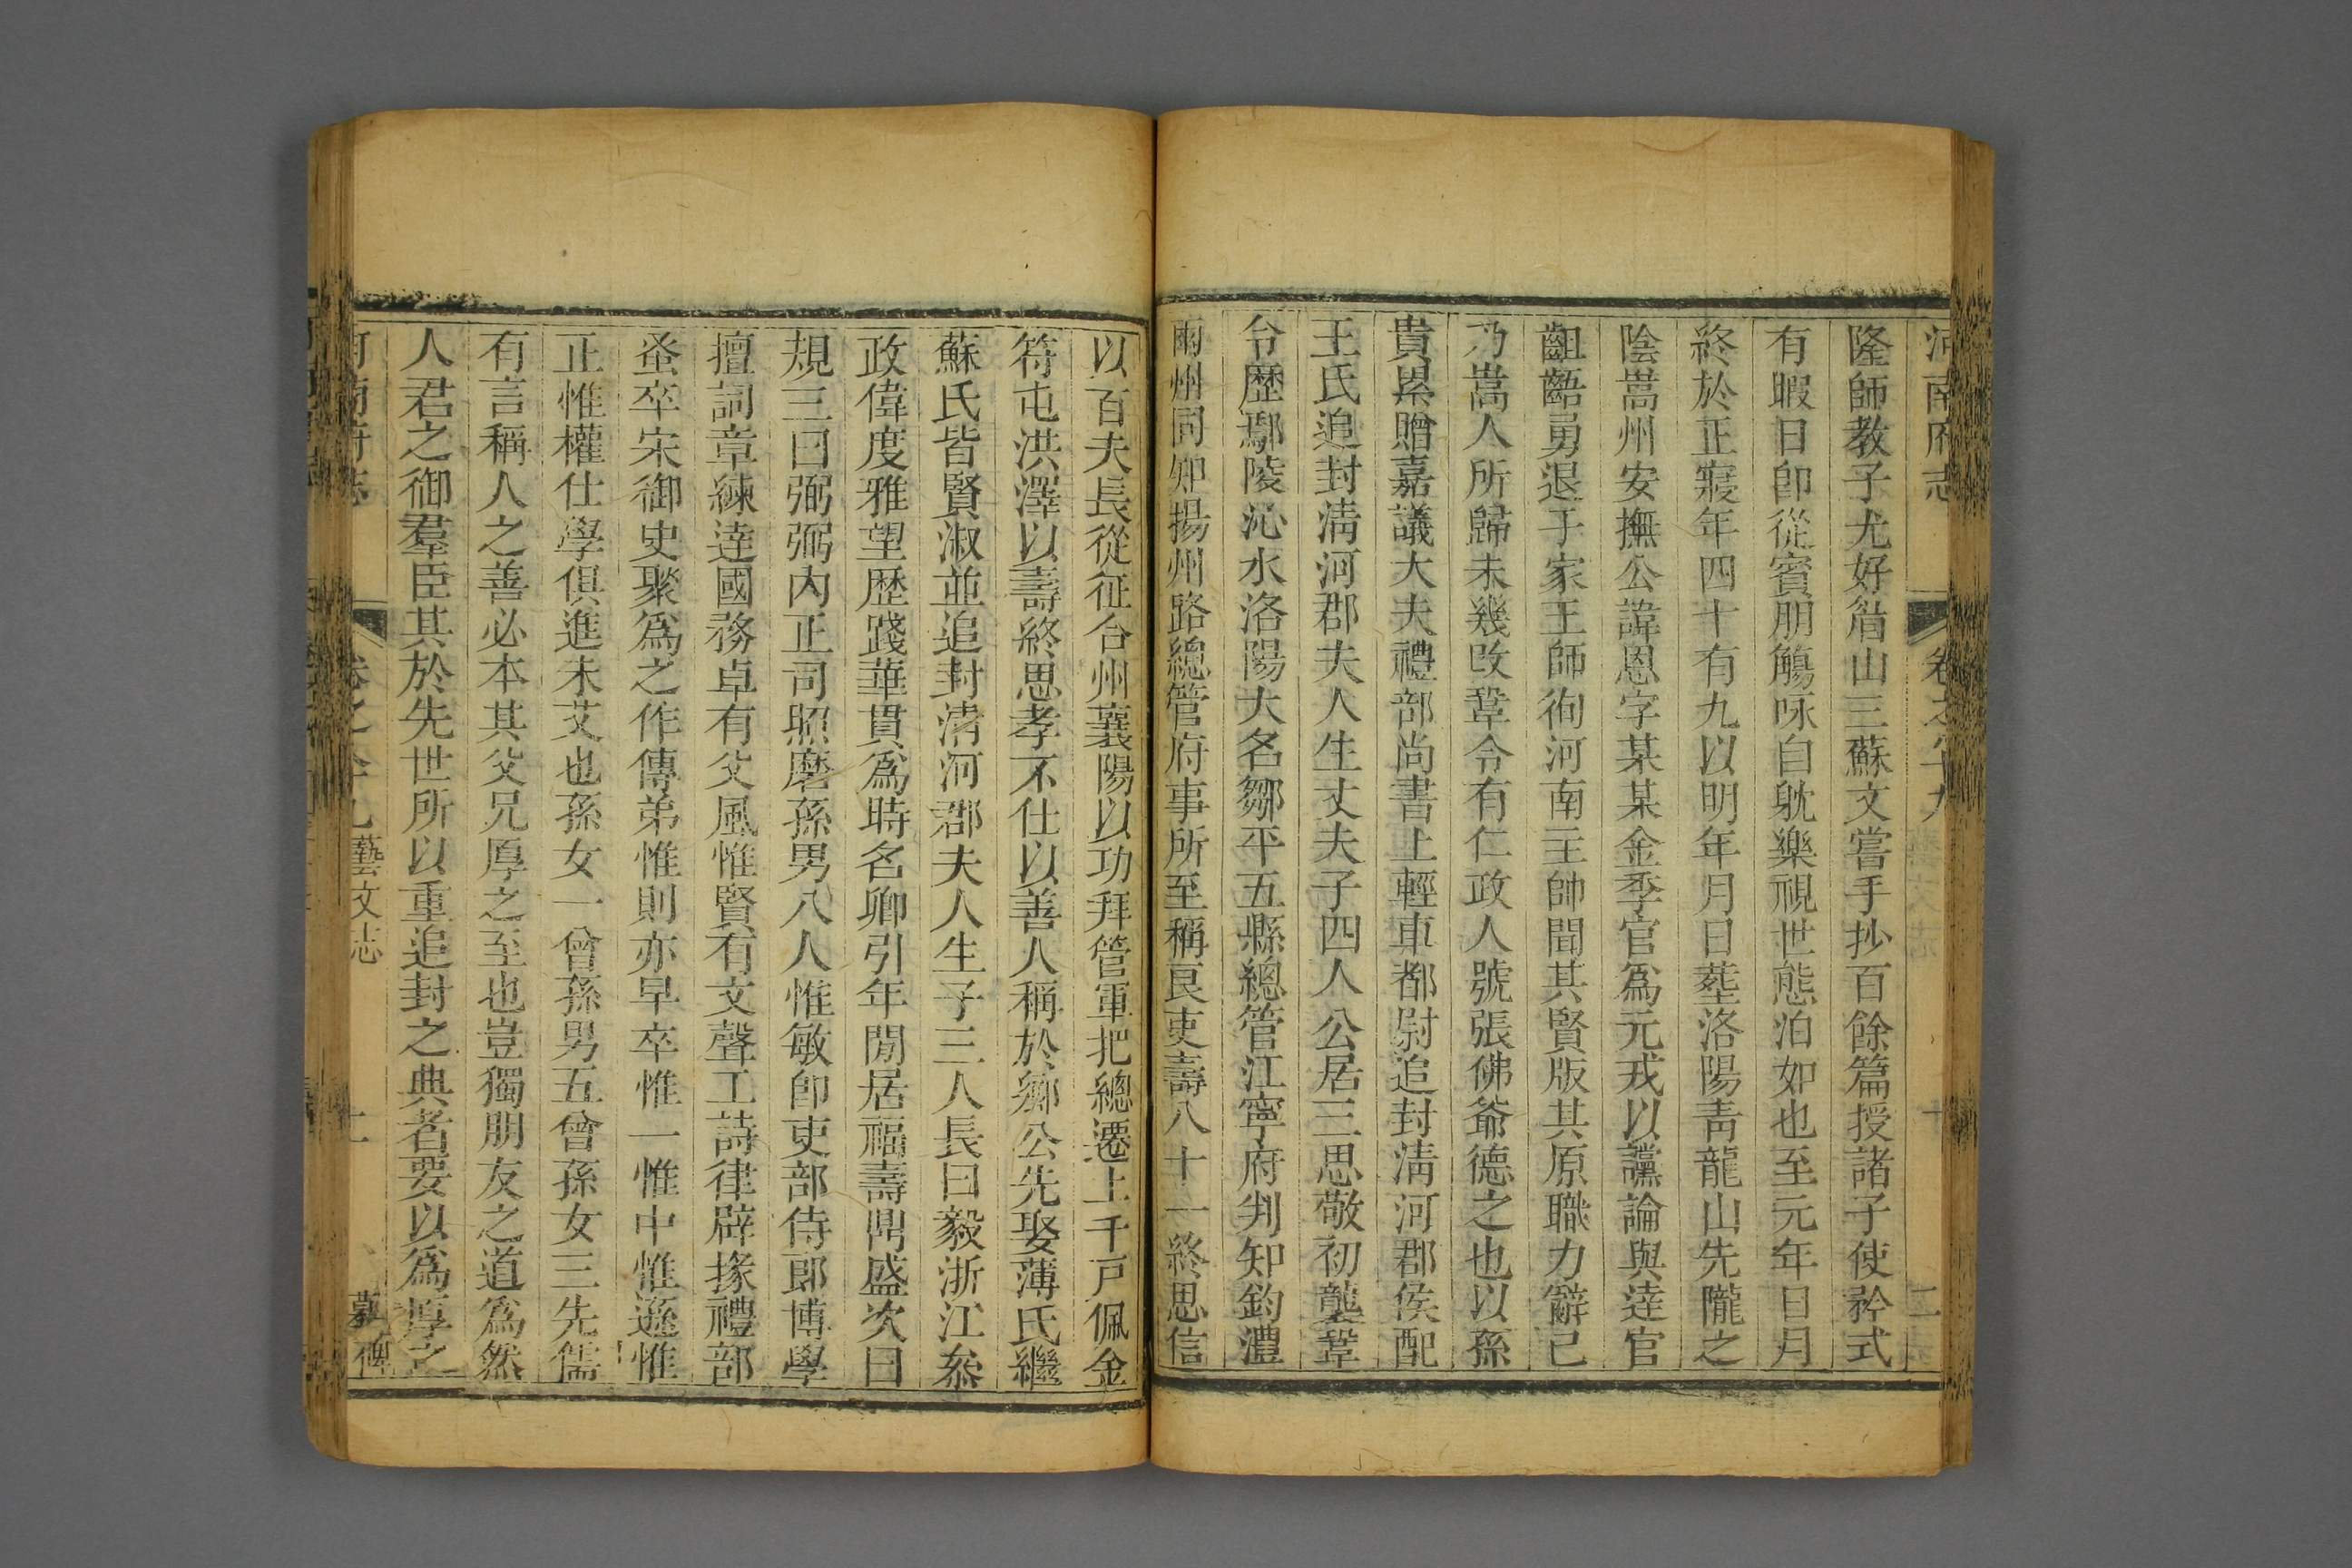 河南府志
卷之
隆師教子尤好眉山三蘇文嘗手抄百餘篇授諸子使矜式
有暇日卽從賓朋觴咏自躭樂視世態泊如也至元年日月
終於正寢年四十有九以明年月日塟洛陽靑龍山先隴之
陰嵩州安撫公諱恩字某某金季官爲元戎以讜論與逹官
齟齬勇退于家王師徇河南主帥聞其賢版其原職力辭已
乃嵩人所歸未幾改鞏令有仁政人號張佛爺德之也以孫
貴累贈嘉議大夫禮部尚書上輕車都尉追封淸河郡侯配
王氏追封淸河郡夫人生丈夫子四人公居三思敬初襲鞏
令歴鄢陵沁水洛陽大名鄒平五縣總管江寧府判知鈞澧
兩州同知揚州路總管府事所至稱良吏壽八十一終思信
以百夫長從征台州襄陽以功拜管軍把總遷上千戸佩金
符屯洪澤以壽終思孝不仕以善人稱於鄉公先娶薄氏繼
蘇氏皆賢淑並追封淸河郡夫人生子三人長曰毅浙江叅
政偉度雅望歴踐華貫爲時名卿引年閒居福壽鼎盛次曰
規三曰弼弼内正司照磨孫男八人惟敏卽吏部侍郎博學
擅詞章練逹國務卓有父風惟賢有文聲工詩律辟掾禮部
蚤卒宋御史聚爲之作傳弟惟則亦早卒惟一惟中惟遜惟
正惟權仕學俱進未艾也孫女一曾孫男五曾孫女三先儒
有言稱人之善必本其父兄厚之至也豈獨朋友之道爲然
人君之御羣臣其於先世所以重追封之典者要以爲厚之
河南府志
卷之
藝文志
墓碑